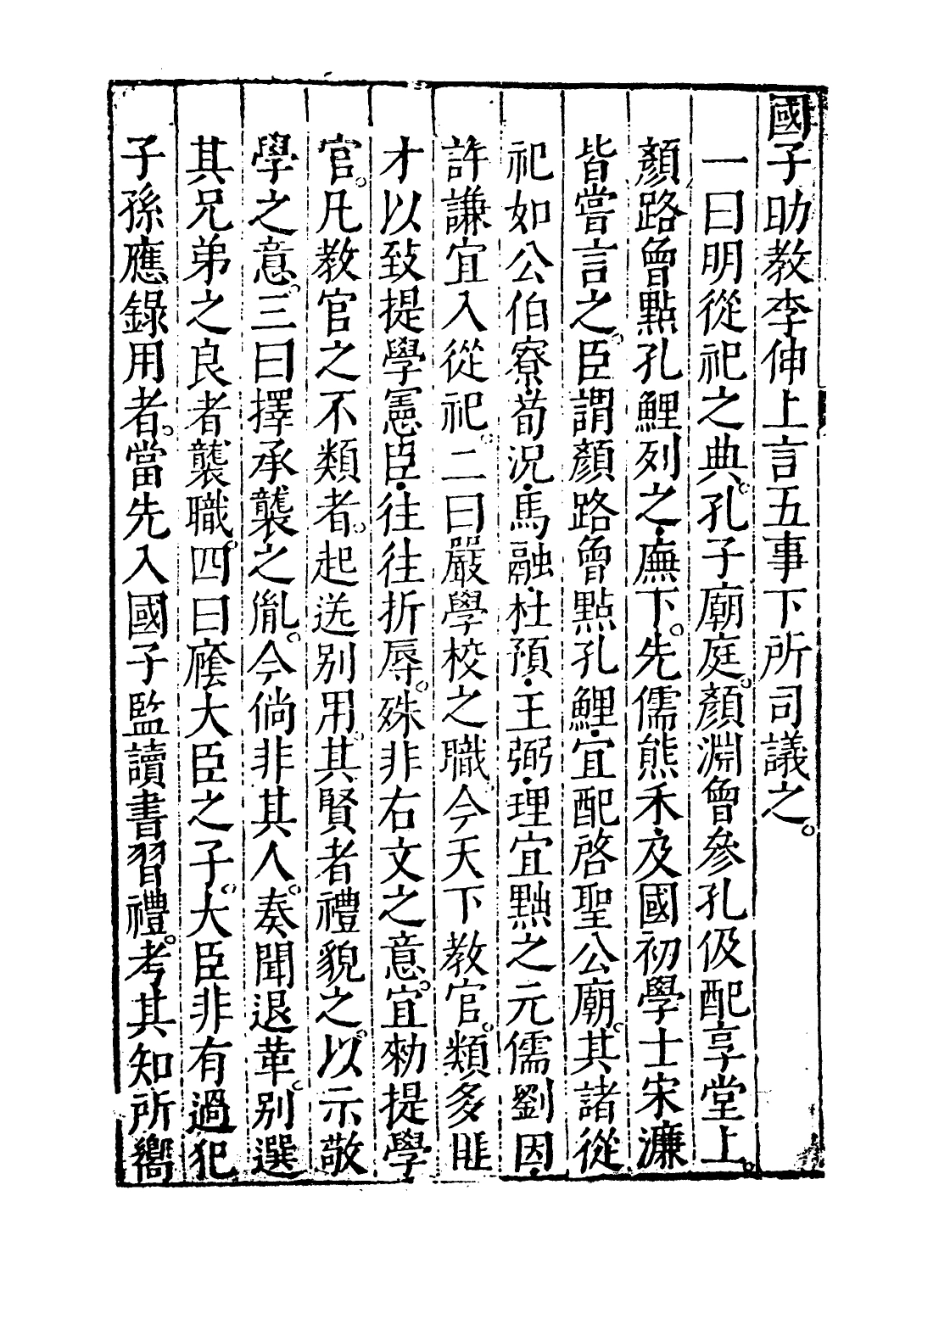 國子助教李伸上言五事下所司議之。
一曰明從祀之典。孔子廟庭。顏淵曾參孔伋配享堂上。
顏路曾點孔鯉列之廡下。先儒熊禾及國初學士宋濂
皆嘗言之。臣謂顏路曾點孔鯉。宜配啓聖公廟。其諸從
祀如公伯寮荀況馬融杜預王弼理宜黜之元儒劉因
許謙宜入從祀。二曰嚴學校之職。今天下教官。類多匪
才以致提學憲臣往往折辱。殊非右文之意。宜勑提學
官。凡教官之不類者。起送別用。其賢者禮貌之。以示敬
學之意。三曰擇承襲之胤。今倘非其人。奏聞退革。別選
其兄弟之良者襲職。四曰廕大臣之子。大臣非有過犯
子孫應錄用者。當先入國子監讀書習禮。考其知所嚮